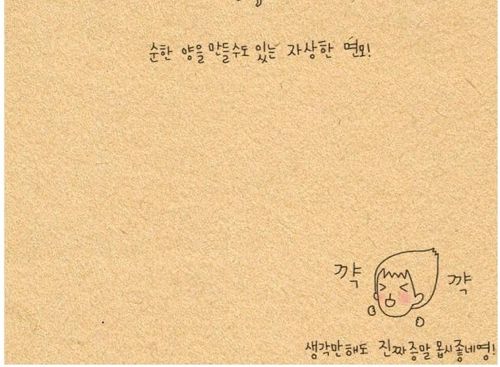 순한 양을 만들수도 있는 자상한 면모!
꺅
꺅
생각만해도 진짜증말 몹시좋네영!